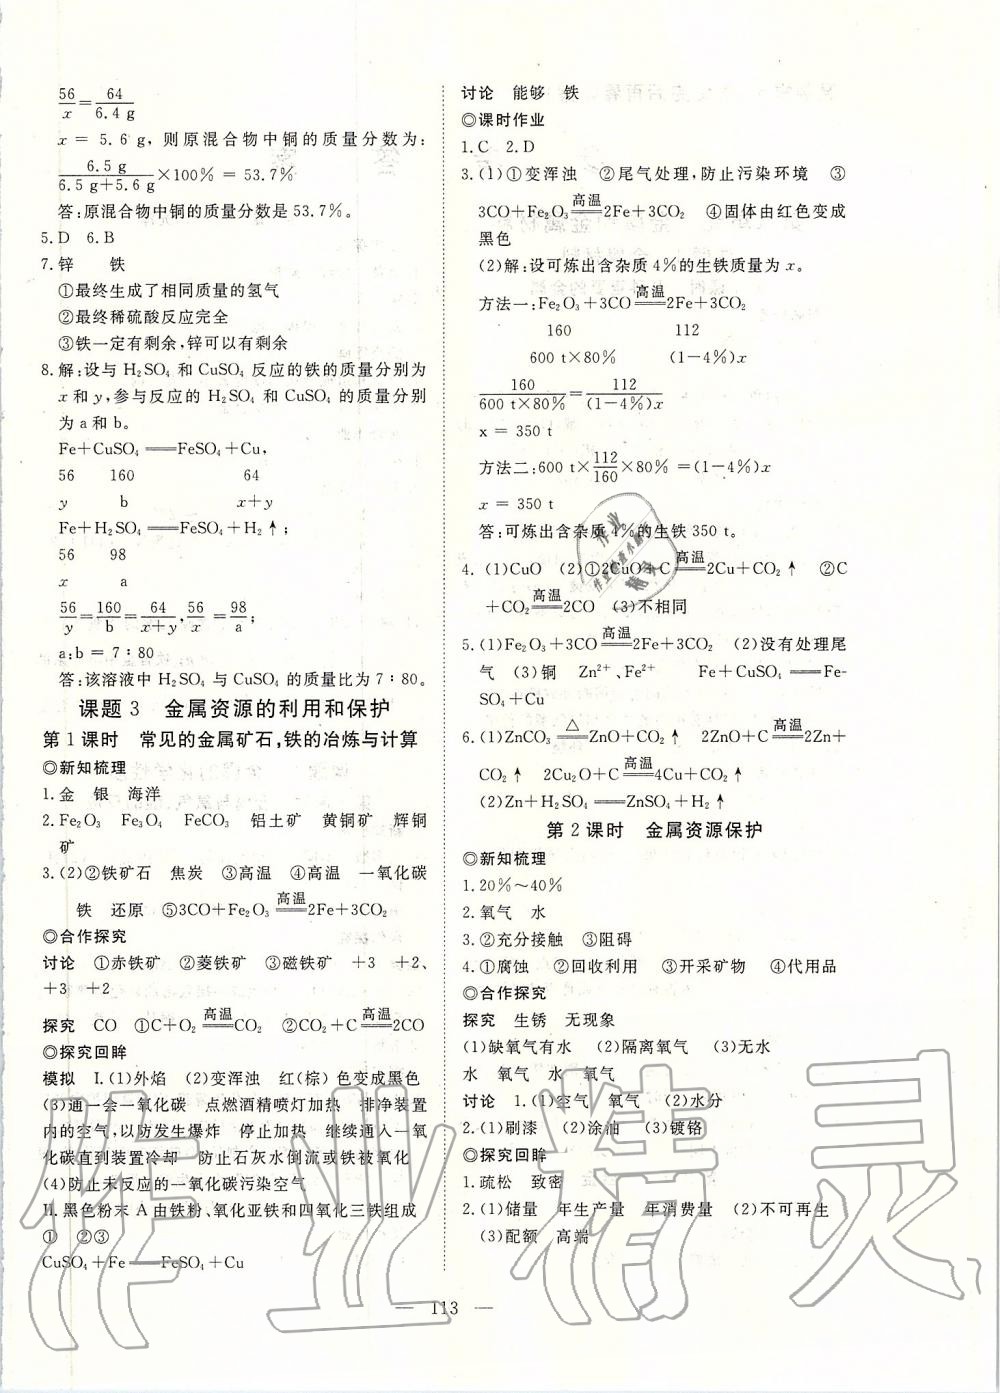 56/x=64/6.4 g
x = 5.6 g,则原混合物中铜的质量分数为:
6.5 g/(6.5 g+5.6 g)×100% = 53.7%
答:原混合物中铜的质量分数是 53.7%。
5.D 6.B
7.锌 铁
①最终生成了相同质量的氢气
②最终稀硫酸反应完全
③铁一定有剩余,锌可以有剩余
8.解:设与 H₂SO₄ 和 CuSO₄ 反应的铁的质量分别为
x 和 y,参与反应的 H₂SO₄ 和 CuSO₄ 的质量分别
为 a 和 b。
Fe+CuSO₄══FeSO₄+Cu,
56 160 64
y b x+y
Fe+H₂SO₄══FeSO₄+H₂↑;
56 98
x a
56/y=160/b=64/(x+y),56/x=98/a;
a:b = 7∶80
答:该溶液中 H₂SO₄ 与 CuSO₄ 的质量比为 7∶80。
课题 3 金属资源的利用和保护
第 1 课时 常见的金属矿石,铁的冶炼与计算
◎新知梳理
1.金 银 海洋
2.Fe₂O₃ Fe₃O₄ FeCO₃ 铝土矿 黄铜矿 辉铜
矿
3.(2)②铁矿石 焦炭 ③高温 ④高温 一氧化碳
铁 还原 ⑤3CO+Fe₂O₃ 高温══ 2Fe+3CO₂
◎合作探究
讨论 ①赤铁矿 ②菱铁矿 ③磁铁矿 +3 +2、
+3 +2
探究 CO ①C+O₂ 高温══ CO₂ ②CO₂+C 高温══ 2CO
◎探究回眸
模拟 Ⅰ.(1)外焰 (2)变浑浊 红(棕)色变成黑色
(3)通一会一氧化碳 点燃酒精喷灯加热 排净装置
内的空气,以防发生爆炸 停止加热 继续通入一氧
化碳直到装置冷却 防止石灰水倒流或铁被氧化
(4)防止未反应的一氧化碳污染空气
Ⅱ.黑色粉末 A 由铁粉、氧化亚铁和四氧化三铁组成
① ②③
CuSO₄+Fe══FeSO₄+Cu
讨论 能够 铁
◎课时作业
1.C 2.D
3.(1)①变浑浊 ②尾气处理,防止污染环境 ③
3CO+Fe₂O₃ 高温══ 2Fe+3CO₂ ④固体由红色变成
黑色
(2)解:设可炼出含杂质 4%的生铁质量为 x。
方法一:Fe₂O₃+3CO 高温══ 2Fe+3CO₂
160 112
600 t×80% (1-4%)x
160/(600 t×80%)=112/((1-4%)x)
x = 350 t
方法二:600 t×112/160×80% =(1-4%)x
x = 350 t
答:可炼出含杂质 4%的生铁 350 t。
4.(1)CuO (2)①2CuO+C 高温══ 2Cu+CO₂↑ ②C
+CO₂ 高温══ 2CO (3)不相同
5.(1)Fe₂O₃+3CO 高温══ 2Fe+3CO₂ (2)没有处理尾
气 (3)铜 Zn²⁺、Fe²⁺ Fe+CuSO₄══Fe-
SO₄+Cu
6.(1)ZnCO₃ △══ ZnO+CO₂↑ 2ZnO+C 高温══ 2Zn+
CO₂↑ 2Cu₂O+C 高温══ 4Cu+CO₂↑
(2)Zn+H₂SO₄══ZnSO₄+H₂↑
第 2 课时 金属资源保护
◎新知梳理
1.20%~40%
2.氧气 水
3.②充分接触 ③阻碍
4.①腐蚀 ②回收利用 ③开采矿物 ④代用品
◎合作探究
探究 生锈 无现象
(1)缺氧气有水 (2)隔离氧气 (3)无水
水 氧气 水 氧气
讨论 1.(1)空气 氧气 (2)水分
2.(1)刷漆 (2)涂油 (3)镀铬
◎探究回眸
1.疏松 致密
2.(1)储量 年生产量 年消费量 (2)不可再生
(3)配额 高端
— 113 —
作业精灵